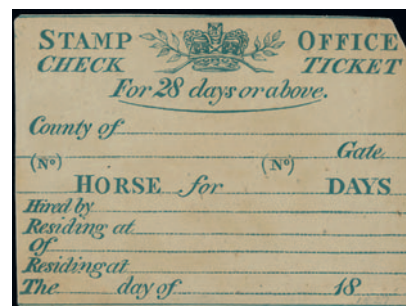 STAMP OFFICE
CHECK TICKET
For 28 days or above.
County of
Gate
(No) (No)
HORSE for DAYS
Hired by
Residing at
Of
Residing at
The day of 18